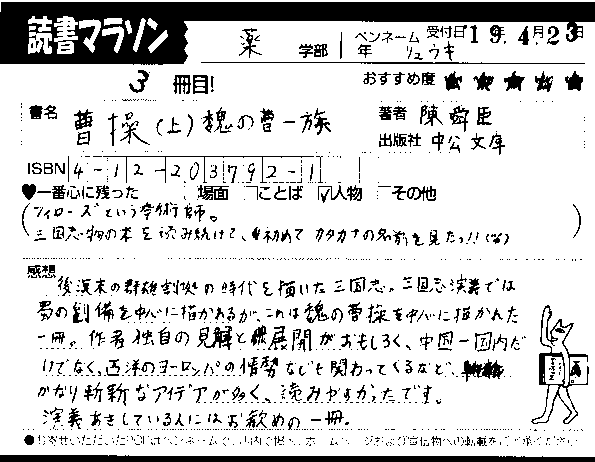 読書マラソン
薬 学部 年 ペンネーム リュウキ 受付日 '19年 4月 23日
3 冊目! おすすめ度 ★★★★★
書名 曹操(上)魏の曹一族
著者 陳舜臣
出版社 中公文庫
ISBN 4-12-203792-1
♥一番心に残った □場面 □ことば ☑人物 □その他
(フィローズという幻術師。
三国志物の本を読み続けて、初めてカタカナの名前を見たっ!!(笑))
感想
後漢末の群雄割拠の時代を描いた三国志。三国志演義では
蜀の劉備を中心に描かれるが、これは魏の曹操を中心に描かれた
一冊。作者独自の見解と展開がおもしろく、中国一国内だ
けでなく、西洋のヨーロッパの情勢なども関わってくるなど、
かなり斬新なアイデアが多く、読みやすかったです。
演義あきしている人にはお勧めの一冊。
●お寄せいただいたPOPはペンネームで、店内で掲示、ホームページおよび宣伝物への転載をご了承ください